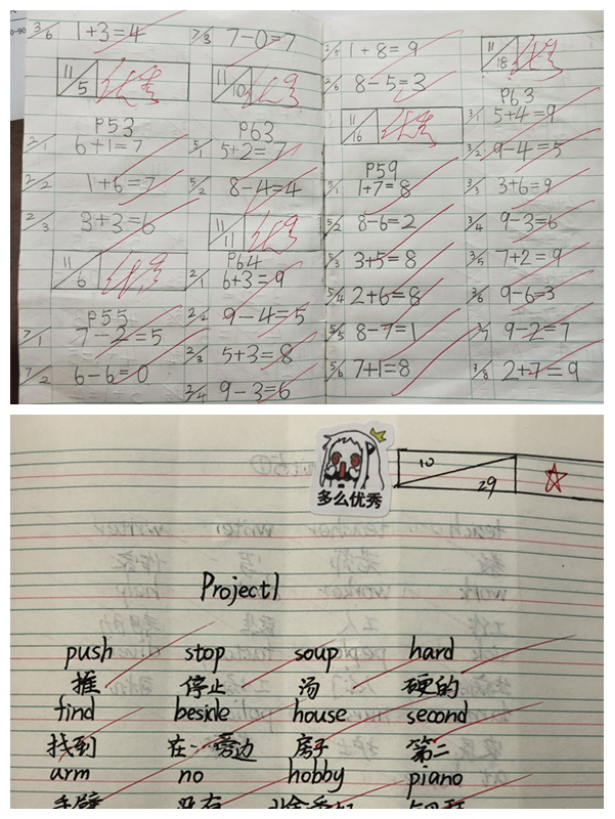 3/6 1+3=4
11/5 优秀
P53
2/1 6+1=7
2/2 1+6=7
2/3 3+3=6
11/6 优秀
P55
7/1 7-2=5
7/2 6-6=0
7/3 7-0=7
11/10 优秀
P63
5/1 5+2=7
5/2 8-4=4
11/11 优秀
P64
2/1 6+3=9
2/2 9-4=5
2/3 5+3=8
2/4 9-3=6
2/5 1+8=9
2/6 8-5=3
11/16 优秀
P59
5/1 1+7=8
5/2 8-6=2
5/3 3+5=8
5/4 2+6=8
5/5 8-7=1
5/6 7+1=8
11/18 优秀
P63
3/1 5+4=9
3/2 9-4=5
3/3 3+6=9
3/4 9-3=6
3/5 7+2=9
3/6 9-6=3
3/7 9-2=7
3/8 2+7=9
多么优秀
10/29
Project1
push stop soup hard
推 停止 汤 硬的
find beside house second
找到 在…旁边 房子 第二
arm no hobby piano
手臂 没有